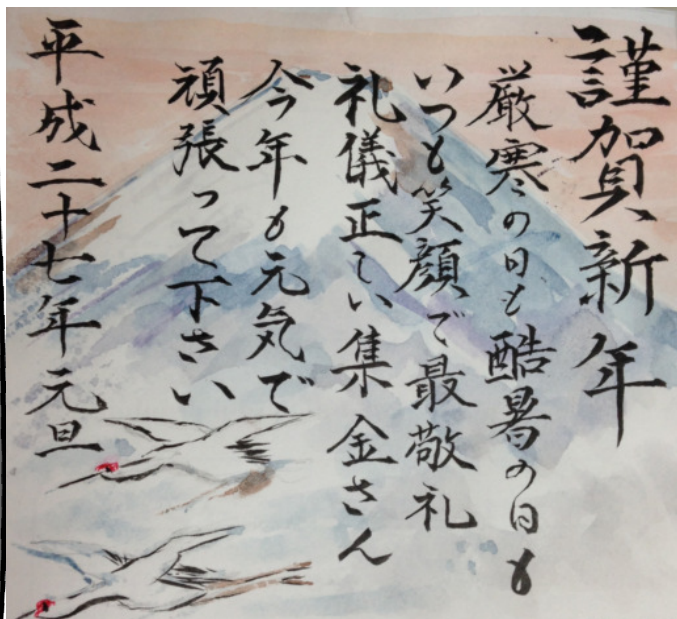 謹賀新年
厳寒の日も酷暑の日も
いつも笑顔で最敬礼
礼儀正しい集金さん
今年も元気で
頑張って下さい
平成二十七年元旦